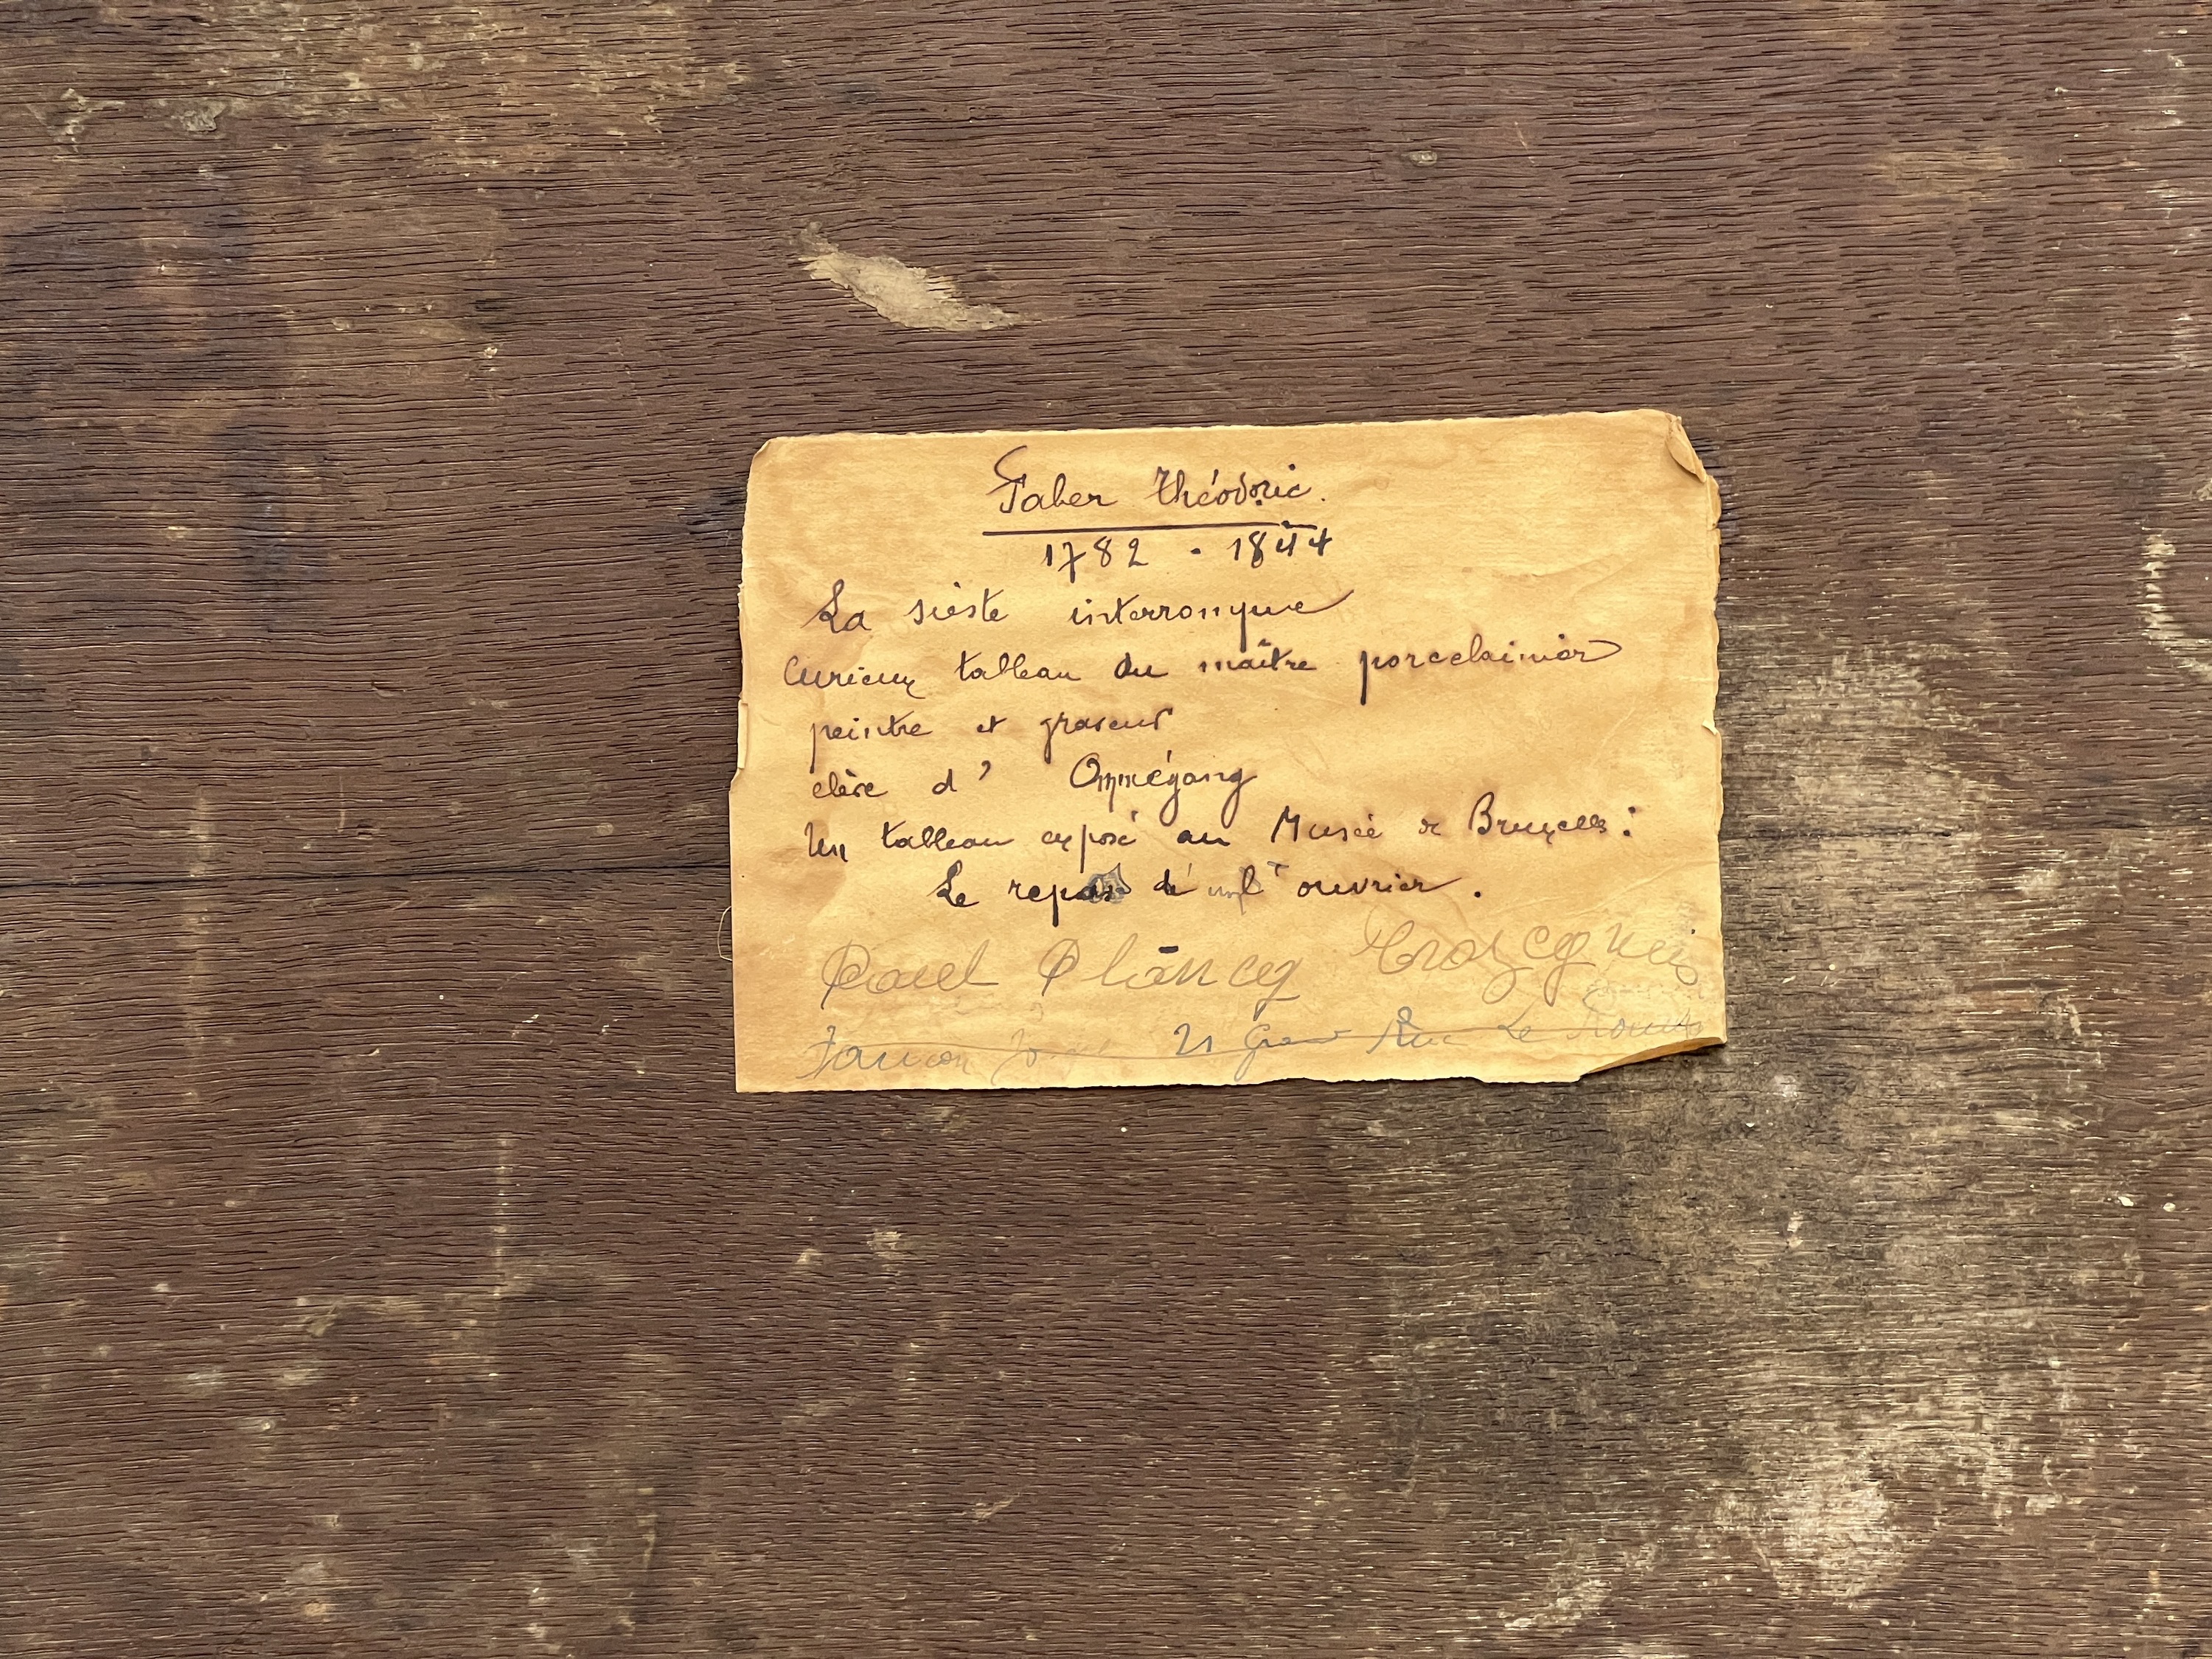 Faber Théodoric.
1782 - 1844
La sièste interrompue
Curieux tableau du maître porcelainier
peintre et graveur
elève d' Ommégang
Un tableau exposé au Musée de Bruxelles :
Le repas de l' ouvrier .
Paul Plancq Trazegnies
21 Grand Rue Le